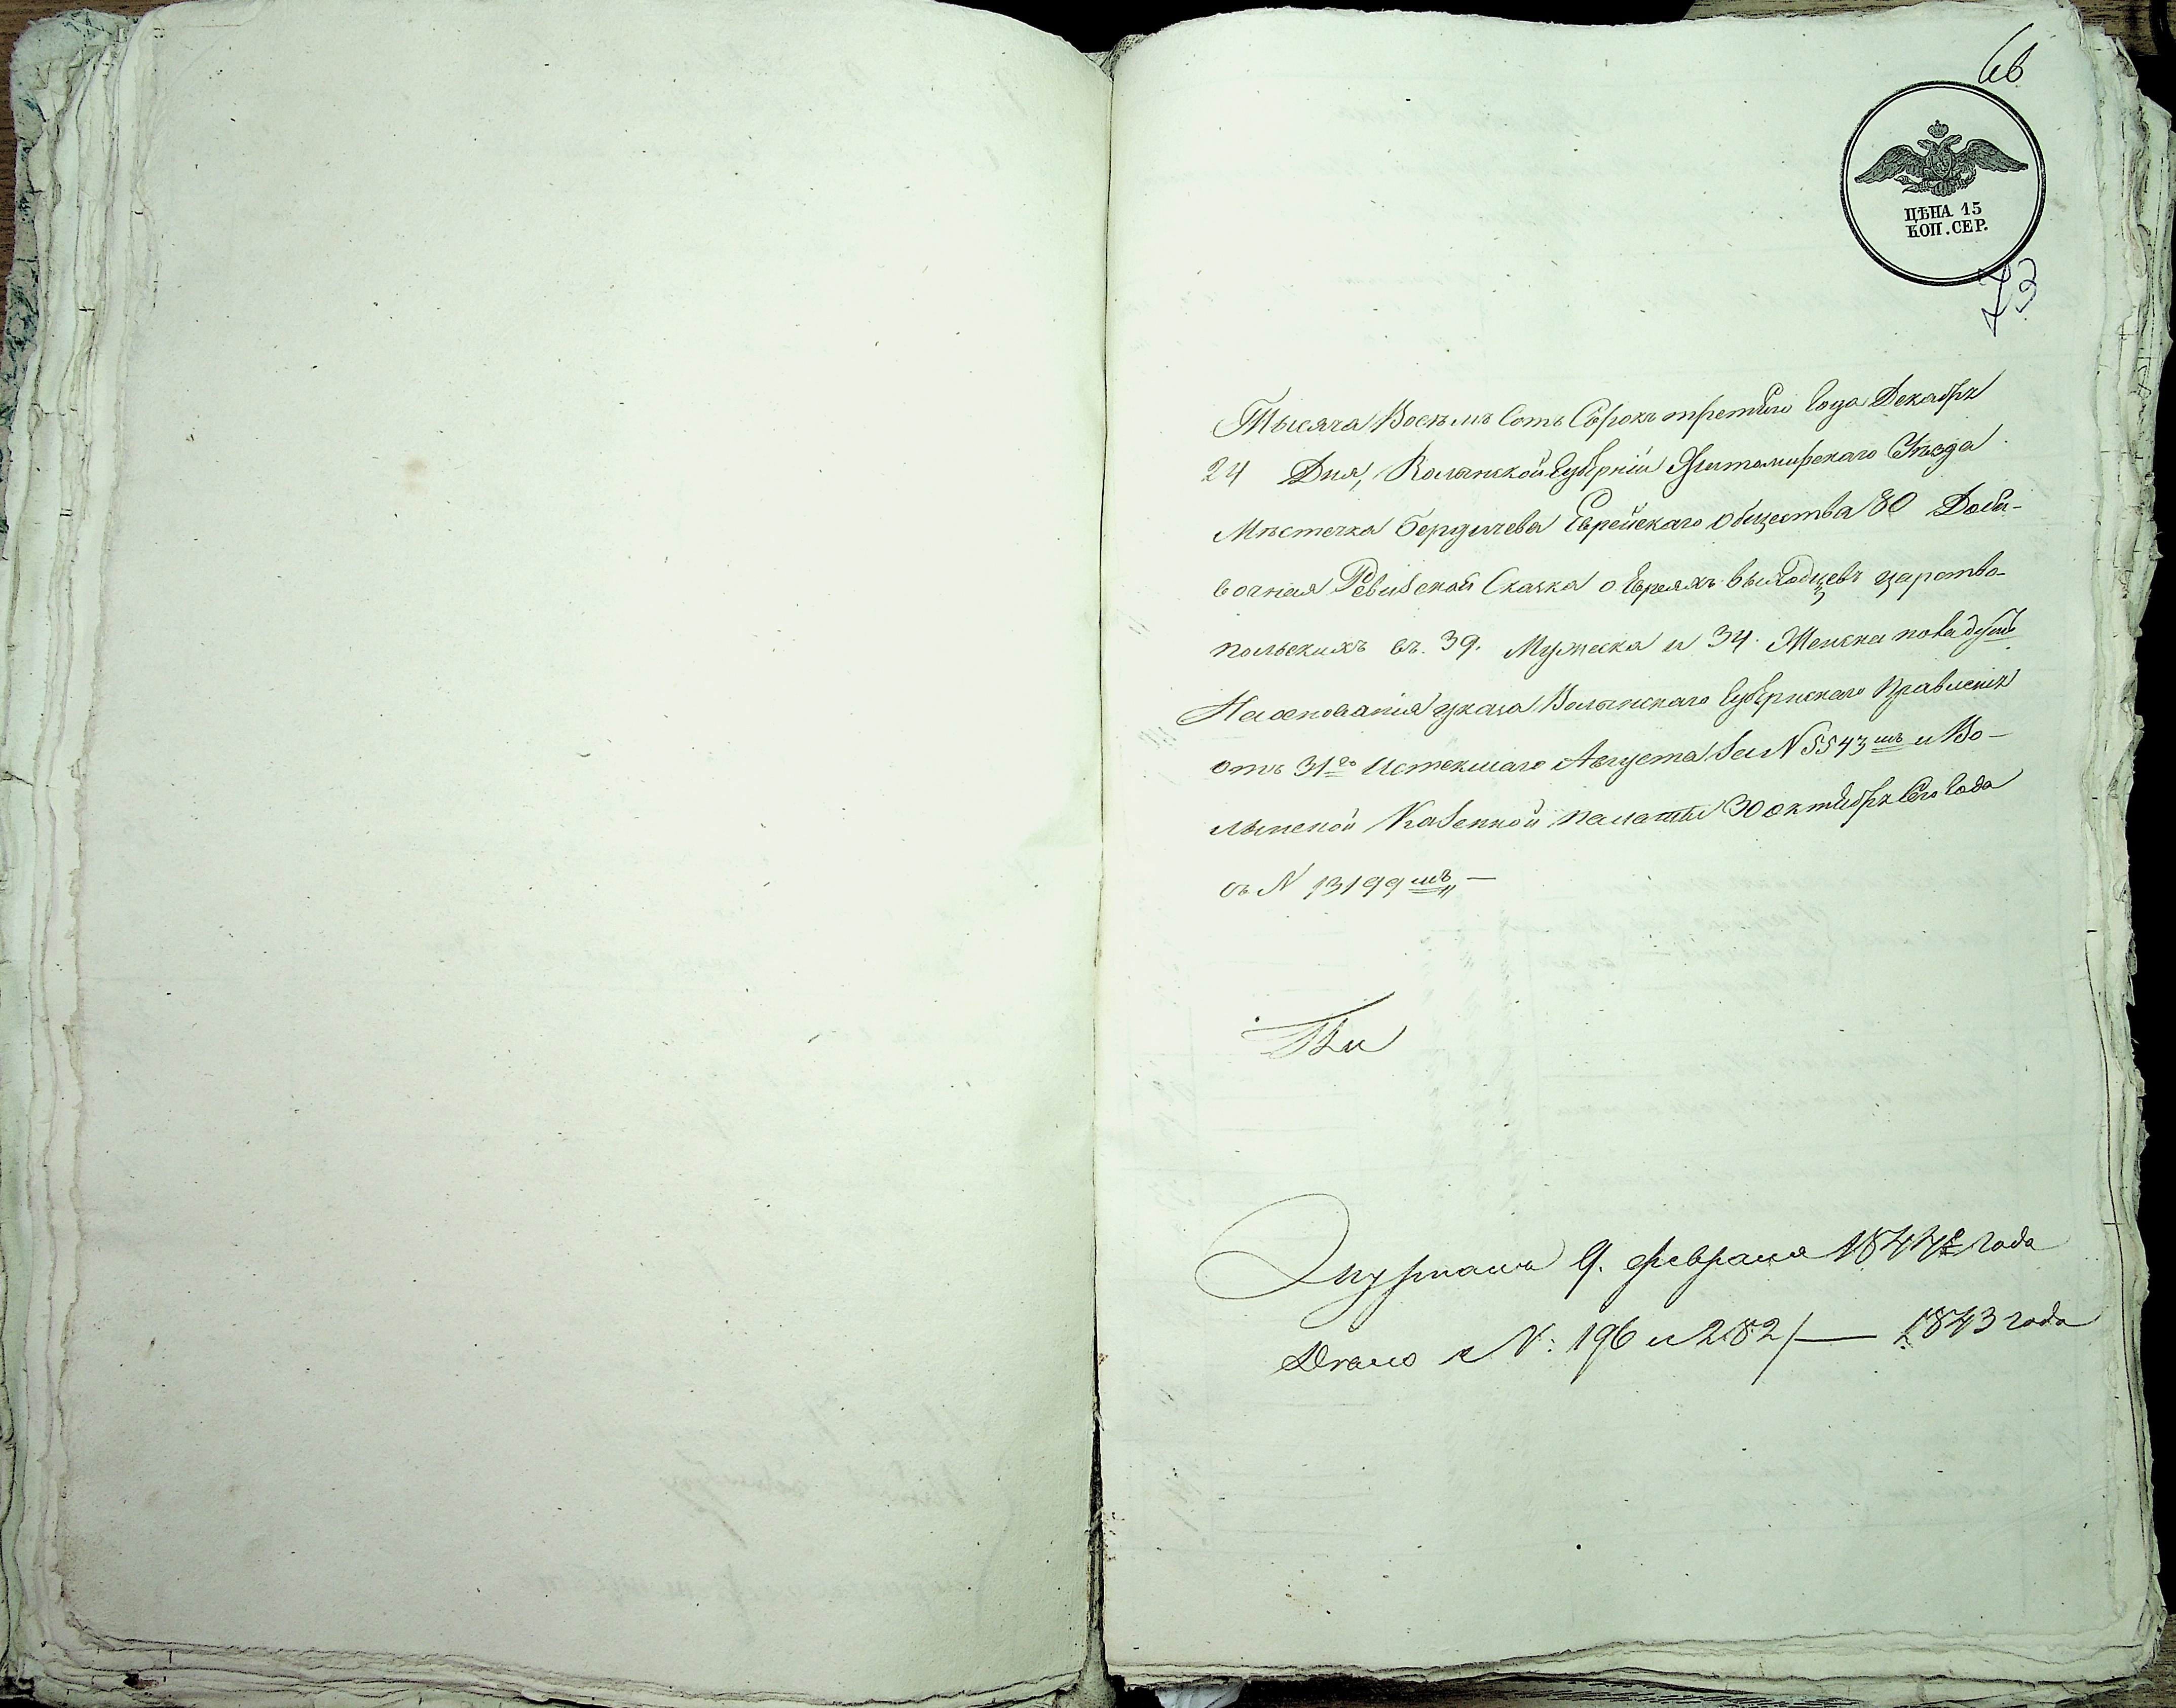 66
ЦѢНА 15
КОП. СЕР.
73
Тысяча Восѣмъ Сотъ Сорокъ третьего Года Декабря
24 Дня, Волынской Губерніи Житомирскаго Уѣзда
Мѣстечка Бердичева Еврейскаго общества 80 Доба-
вочная Ревизской Сказка о Евреяхъ выходцевъ царства
польскихъ въ. 39. Мужеска и 34. Женска пола душъ
На основания указа Волынскаго Губернскаго Правления
отъ 31го Истекшаго Августа За N 5543мъ и Во-
лынской Казенной палаты 30 октября Сего Года
съ N 13199мъ —
9. февраля 1844го Года
Дѣло N: 196 и 282/— 1843 года